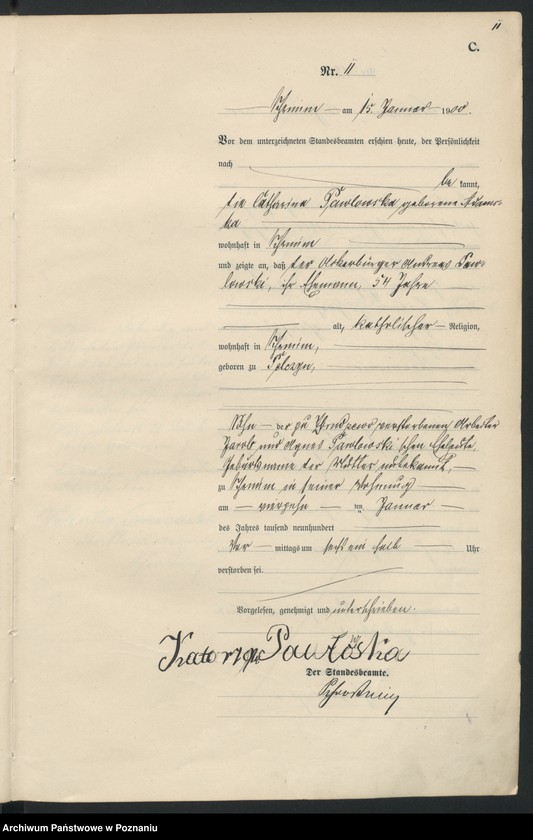 11
C.
Nr. 11
Schrimm am 15. Januar 1900.
Vor dem unterzeichneten Standesbeamten erschien heute, der Persönlichkeit
nach
be kannt,
die Catharina Pawlowska geborene
wohnhaft in Schrimm
und zeigte an, daß der Ackerbürger Andreas Paw-
lowski, ihr Ehemann, 54 Jahre
alt, katholischer Religion,
wohnhaft in Schrimm,
geboren zu
Sohn der zu verstorbenen Arbeiter
Jacob und Agnes Pawlowski'schen Eheleute,
Geburtsname der Mutter unbekannt,
zu Schrimm in seiner Wohnung
am vierzehn ten Januar
des Jahres tausend neunhundert
Vor mittags um sechs ein halb Uhr
verstorben sei.
Vorgelesen, genehmigt und unterschrieben.
Pawłoska
Der Standesbeamte.
Archiwum Państwowe w Poznaniu